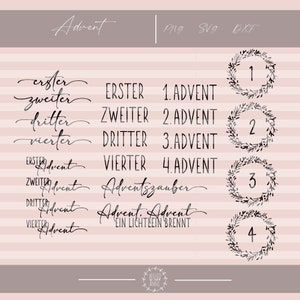 Advent
PNG SVG DXF
erster
zweiter
dritter
vierter
ERSTER
ZWEITER
DRITTER
VIERTER
1.ADVENT
2.ADVENT
3.ADVENT
4.ADVENT
ERSTER Advent
ZWEITER Advent
DRITTER Advent
VIERTER Advent
Adventszauber
Advent, Advent
EIN LICHTLEIN BRENNT
1
2
3
4